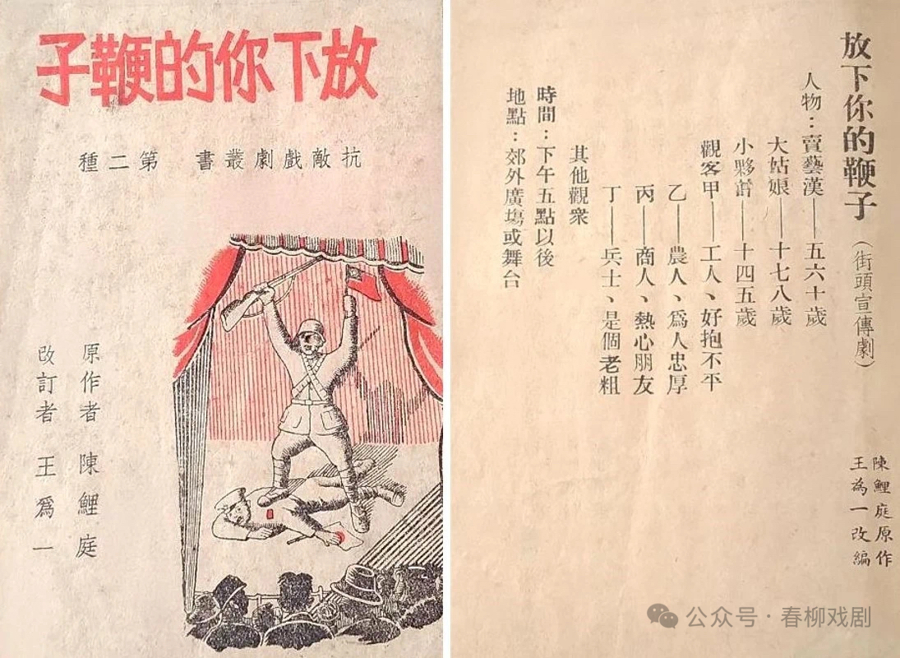 放下你的鞭子
抗敵戲劇叢書 第二種
原作者 陳鯉庭
改訂者 王爲一
放下你的鞭子（街頭宣傳劇）
陳鯉庭原作
王為一改編
人物：賣藝漢——五六十歲
大姑娘——十七八歲
小夥——十四五歲
觀客甲——工人、好抱不平
乙——農人、爲人忠厚
丙——商人、熱心朋友
丁——兵士、是個老粗
其他觀衆
時間：下午五點以後
地點：郊外廣塲或舞台
公众号·春柳戏剧